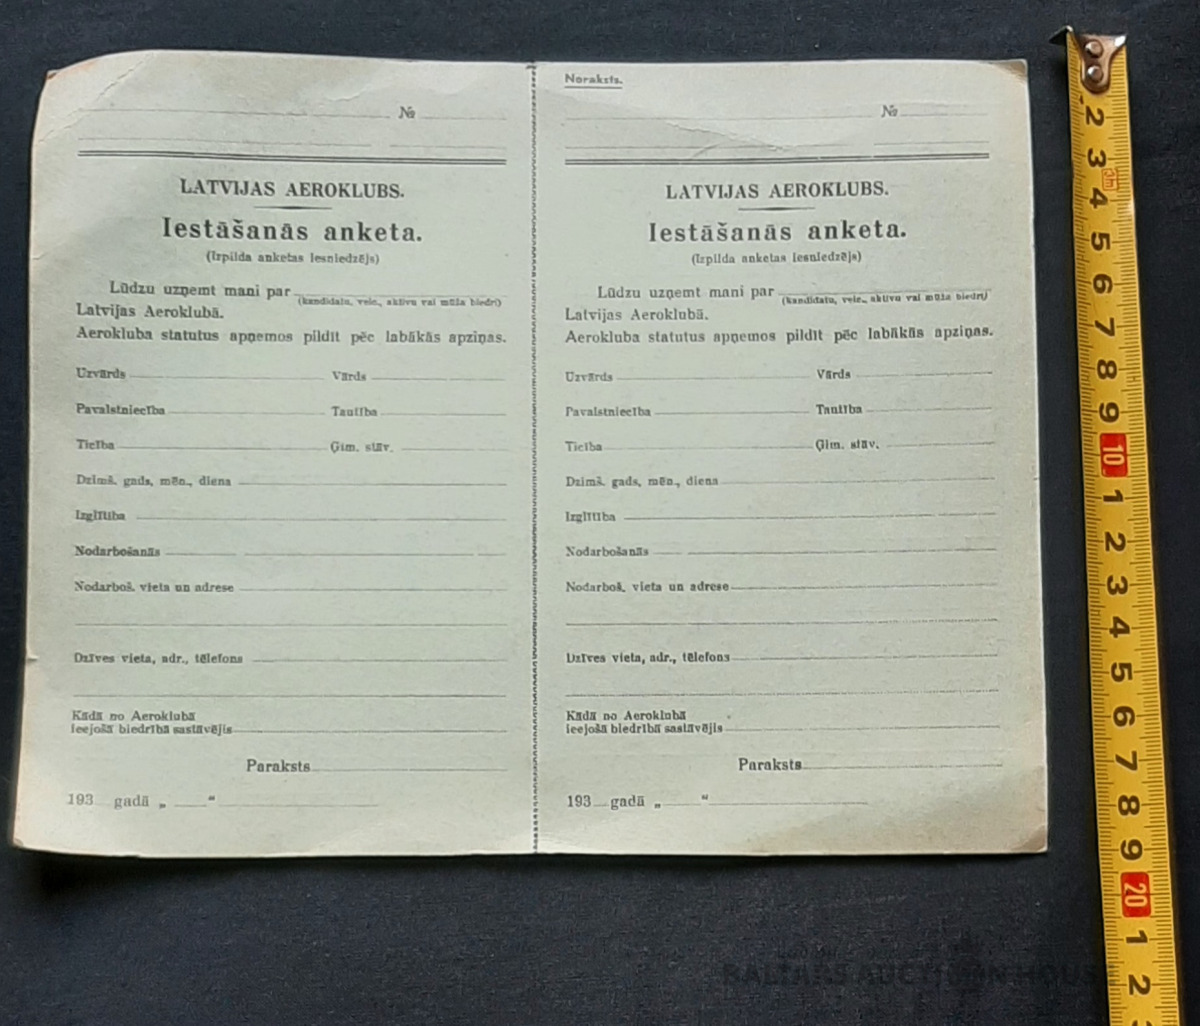 №
LATVIJAS AEROKLUBS.
Iestāšanās anketa.
(Izpilda anketas iesniedzējs)
Lūdzu uzņemt mani par
(kandidatu, veic., aktivu vai mūža biedri)
Latvijas Aeroklubā.
Aerokluba statutus apņemos pildīt pēc labākās apziņas.
Uzvārds Vārds
Pavalstniecība Tautība
Ticība Ģim. stāv.
Dzimš. gads, mēn., diena
Izglītība
Nodarbošanās
Nodarboš. vieta un adrese
Dzīves vieta, adr., tēlefons
Kādā no Aeroklubā
ieejošā biedrībā sastāvējis
Paraksts
193 gadā „ “
Noraksts.
№
LATVIJAS AEROKLUBS.
Iestāšanās anketa.
(Izpilda anketas iesniedzējs)
Lūdzu uzņemt mani par
(kandidatu, veic., aktivu vai mūža biedri)
Latvijas Aeroklubā.
Aerokluba statutus apņemos pildīt pēc labākās apziņas.
Uzvārds Vārds
Pavalstniecība Tautība
Ticība Ģim. stāv.
Dzimš. gads, mēn., diena
Izglītība
Nodarbošanās
Nodarboš. vieta un adrese
Dzīves vieta, adr., tēlefons
Kādā no Aeroklubā
ieejošā biedrībā sastāvējis
Paraksts
193 gadā „ “
2
3
3m
4
5
6
7
8
9
10
1
2
3
4
5
6
7
8
9
20
1
2
BALTARS AUCTION HOUSE